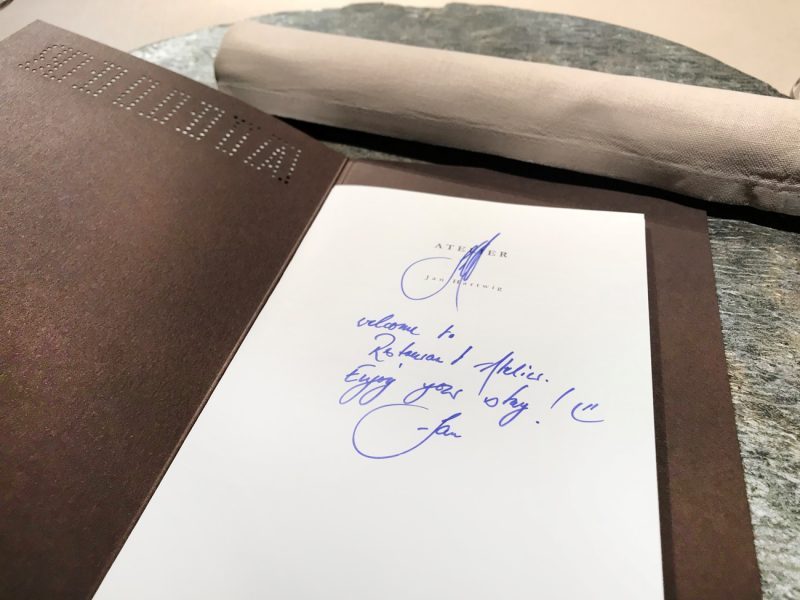 ATELIER
Jan Hartwig
welcome to
Restaurant Atelier.
Enjoy your stay! :)
-Jan